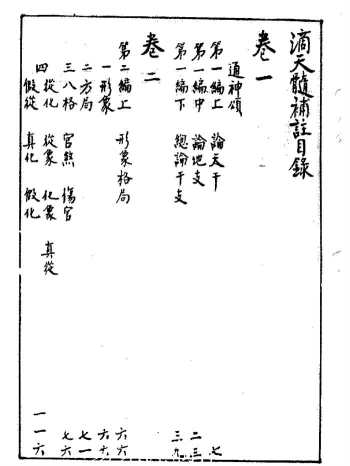 滴天髓補註目錄
卷一
通神頌
第一編上 論天干 七
第一編中 論地支 二三
第一編下 總論干支 三九
卷二
第二編上 形象格局 六六
一形象 六六
二方局 七一
三八格 官煞 傷官 七六
四從化 從象 化象 真從 一一六
假從 真化 假化